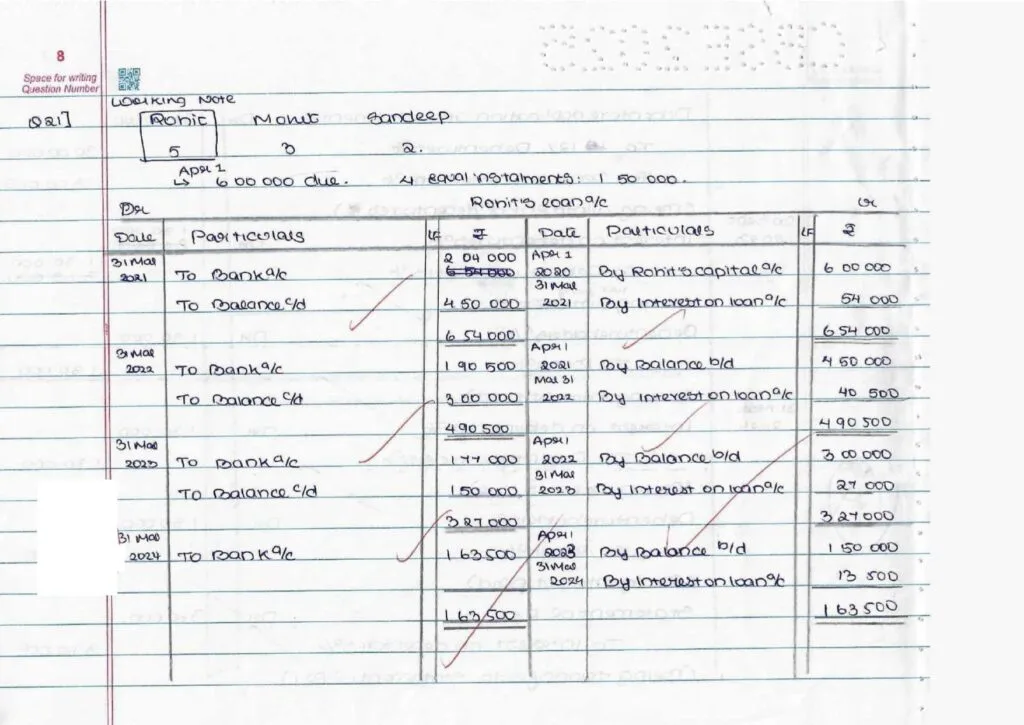 8
Space for writing
Question Number
Working Note
Q21] Rohit Mohit Sandeep
5 3 2.
Apr 1
↳ 6 00 000 due. 4 equal instalments: 1 50 000.
Rohit's Loan a/c
Dr Cr
Date Particulars LF ₹ Date Particulars LF ₹
31 Mar 2 04 000 Apr 1
2021 To Bank a/c 6 54 000 2020 By Rohit's capital a/c 6 00 000
31 Mar
To Balance c/d 4 50 000 2021 By Interest on loan a/c 54 000
6 54 000 6 54 000
31 Mar Apr 1
2022 To Bank a/c 1 90 500 2021 By Balance b/d 4 50 000
Mar 31
To Balance c/d 3 00 000 2022 By Interest on loan a/c 40 500
4 90 500 4 90 500
31 Mar Apr 1
2023 To Bank a/c 1 77 000 2022 By Balance b/d 3 00 000
31 Mar
To Balance c/d 1 50 000 2023 By Interest on loan a/c 27 000
3 27 000 3 27 000
31 Mar Apr 1
2024 To Bank a/c 1 63 500 2023 By Balance b/d 1 50 000
31 Mar
2024 By Interest on loan a/c 13 500
1 63 500 1 63 500